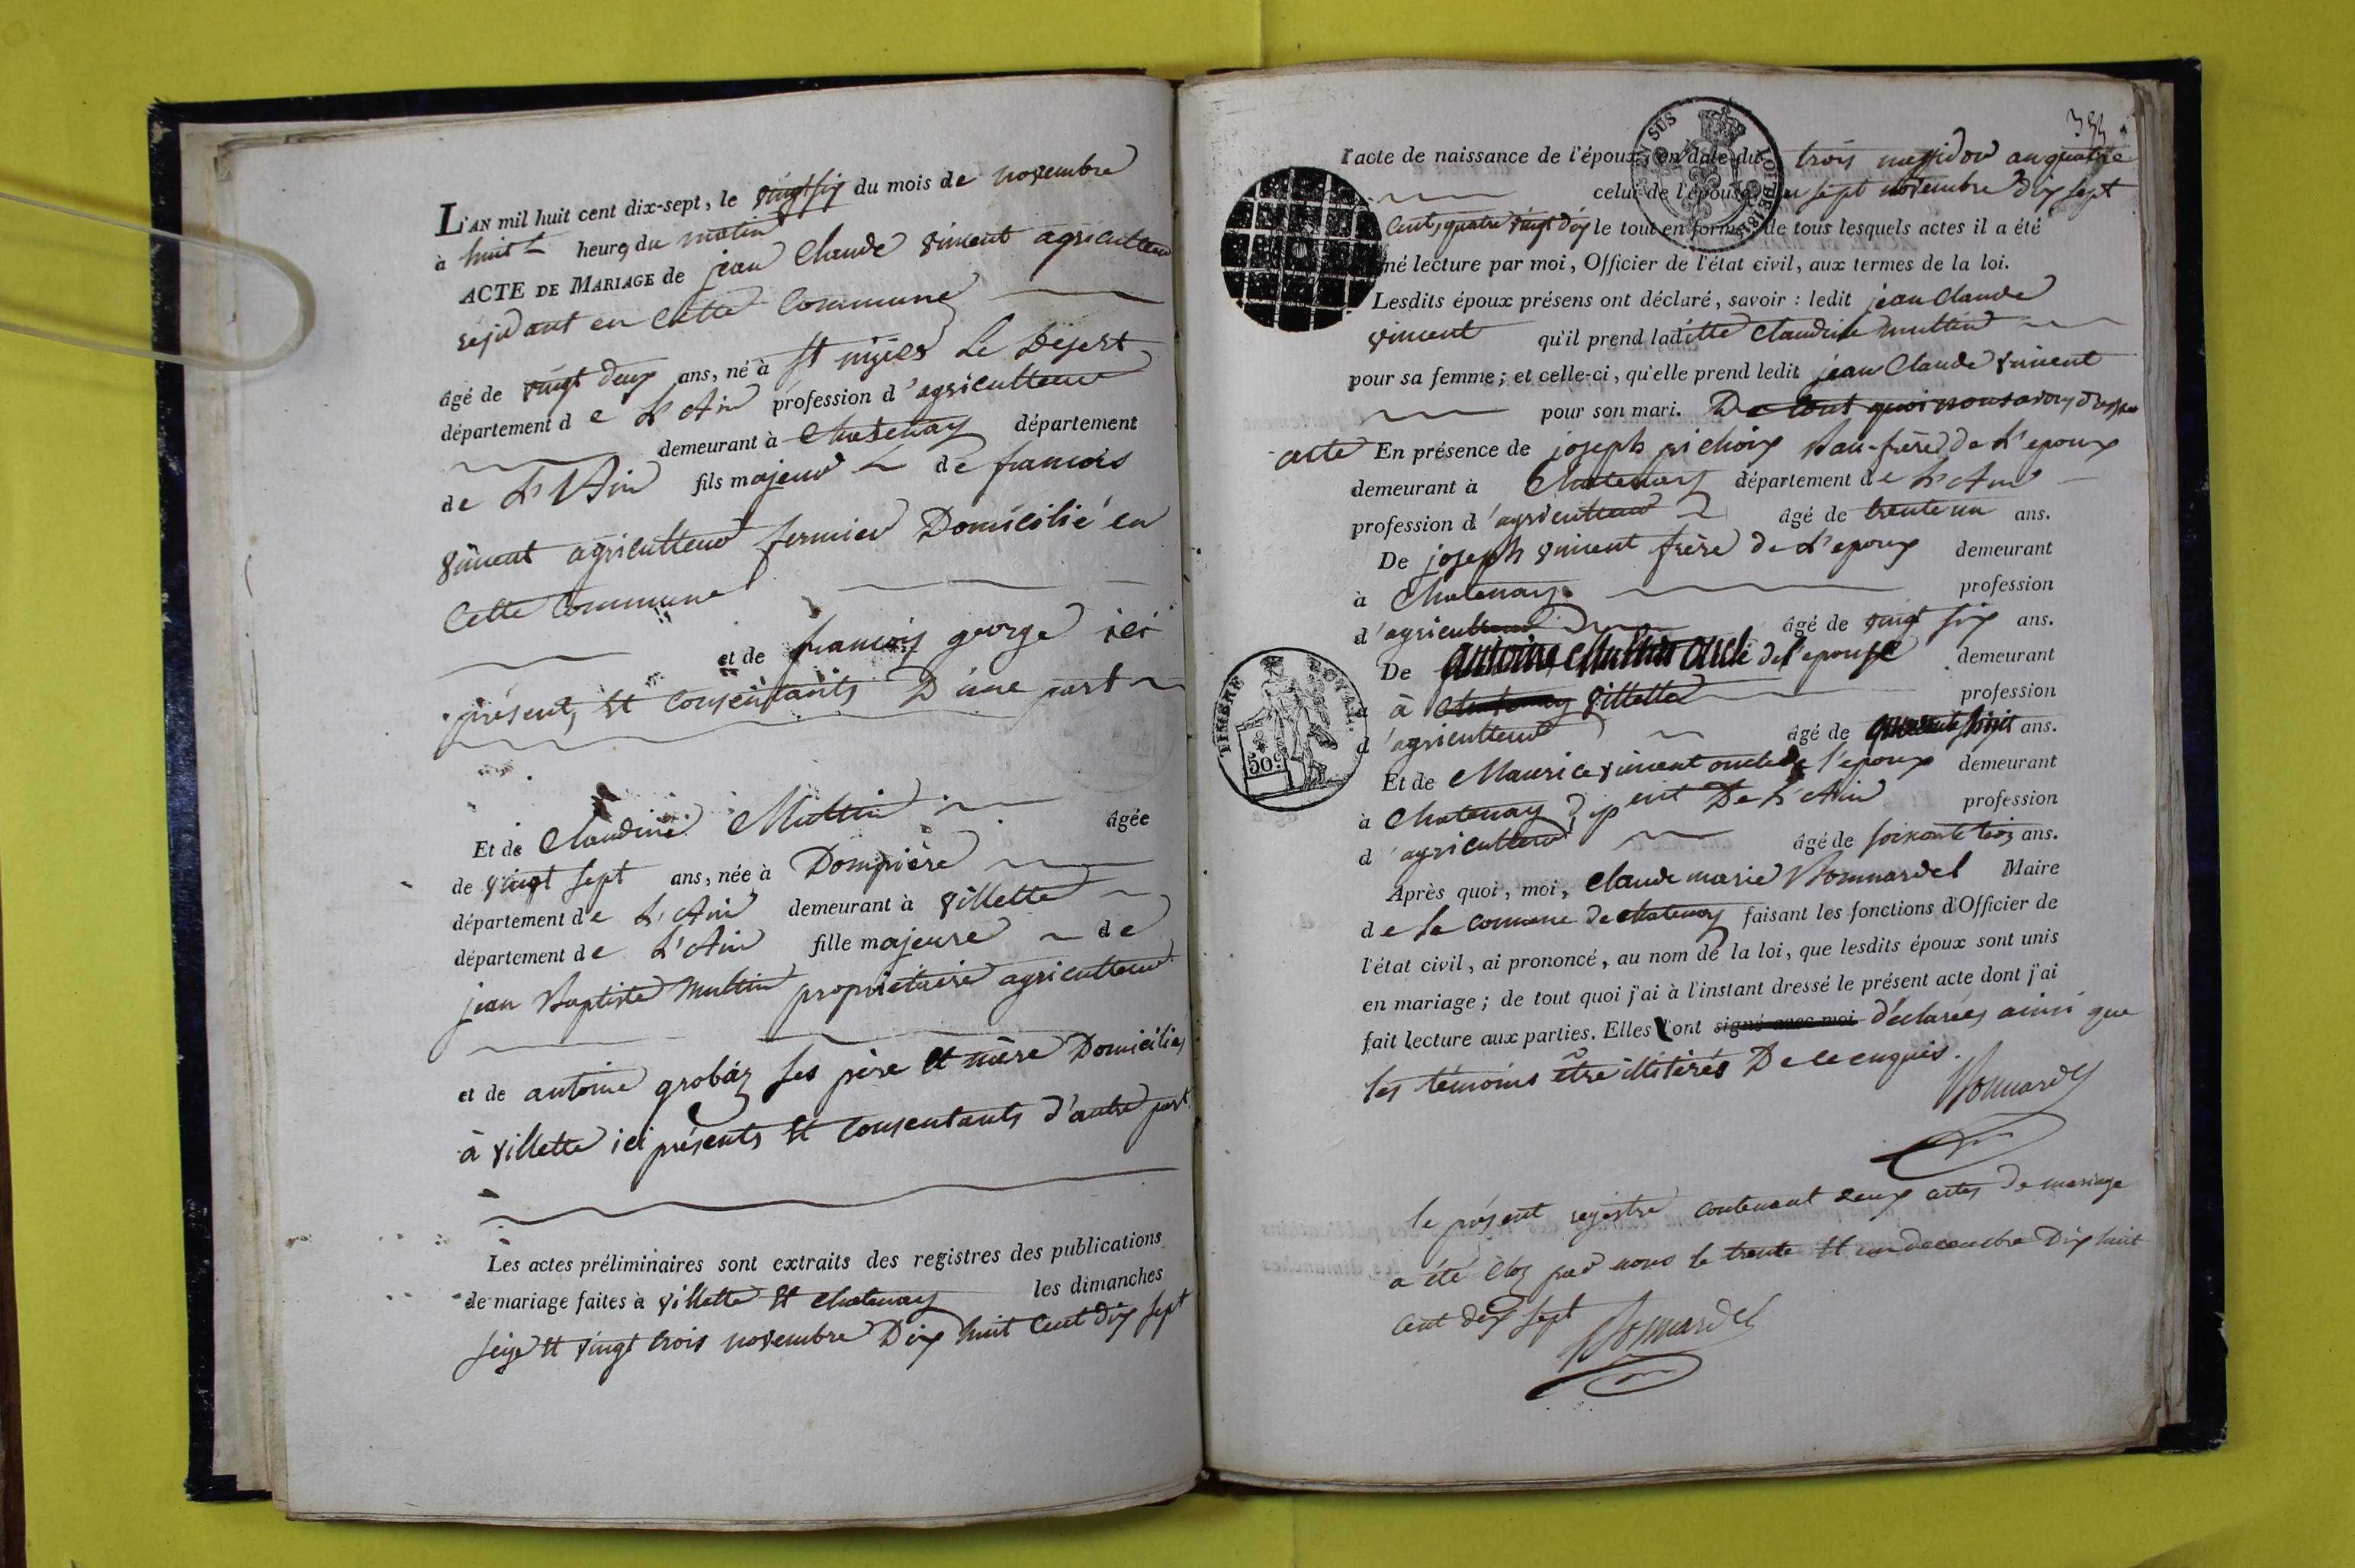 L'AN mil huit cent dix-sept, le vingt six du mois de novembre
à huit heures du matin
ACTE DE MARIAGE de jean Claude vincent agriculteur
residant en Cette Commune
âgé de vingt deux ans, né à St nizier Le Desert
département de L'Ain profession d'agriculteur
demeurant à Chatenay département
de L'Ain fils majeur de francois
vincent agriculteur fermier Domicilié en
Cette Commune
et de francois george ici
présents, et consentants D'une part
Et de Claudine Multin âgée
de vingt sept ans, née à Dompière
département de L'Ain demeurant à villette
département de L'Ain fille majeure de
jean Baptiste Multin propriétaire agriculteur
et de antoine grobáz ses père et mère Domiciliés
à villette ici présents et consentants d'autre part
Les actes préliminaires sont extraits des registres des publications
de mariage faites à villette et chatenay les dimanches
seize et vingt trois novembre Dix huit cent dix sept
l'acte de naissance de l'époux, en date du trois messidor an quatre
celui de l'épouse, du sept novembre dix sept
cents quatre vingt dix le tout en forme; de tous lesquels actes il a été
né lecture par moi, Officier de l'état civil, aux termes de la loi.
Lesdits époux présens ont déclaré, savoir : ledit jean Claude
vincent qu'il prend laditte Claudine multin
pour sa femme; et celle-ci, qu'elle prend ledit jean Claude vincent
pour son mari. De tout quoi nous avons dressé
acte En présence de joseph pichoix Bau-frère de L'epoux
demeurant à Chatenay département de L'Ain
profession d'agriculteur âgé de trente un ans.
De joseph vincent frère de L'epoux demeurant
à Chatenay profession
d'agriculteur âgé de vingt six ans.
De antoine Multin oncle de l'epouse demeurant
à Chatenay villette profession
d'agriculteur âgé de ans.
Et de Maurice vincent oncle de l'epoux demeurant
à Chatenay dépent De L'Ain profession
d'agriculteur âgé de soixante trois ans.
Après quoi, moi, Claude marie Bommardel Maire
de la comune de chatenay faisant les fonctions d'Officier de
l'état civil, ai prononcé, au nom de la loi, que lesdits époux sont unis
en mariage; de tout quoi j'ai à l'instant dressé le présent acte dont j'ai
fait lecture aux parties. Elles l'ont signé avec moi déclarées ainsi que
les témoins être illiterés De ce enquis.
Bommardel
le présent registre contenant deux actes de mariage
a été cloz par nous le trente et un decembre Dix huit
cent dix sept Bommardel
TIMBRE ROYAL
50c